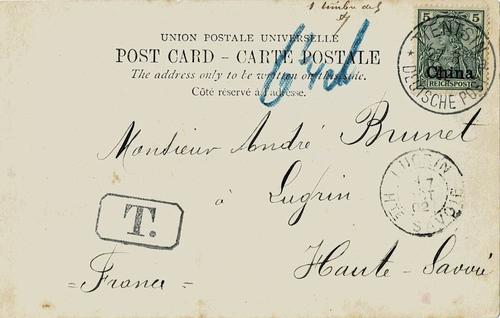 1 timbre de 5
UNION POSTALE UNIVERSELLE
POST CARD – CARTE POSTALE
The address only to be written on this side.
Côté réservé à l'adresse.
5 5
China
REICHSPOST
TIENTSIN
DEUTSCHE POST
Monsieur André Brunet
à Lugrin
LUGRIN
17
02
HTE SAVOIE
T.
Haute-Savoie
= France =